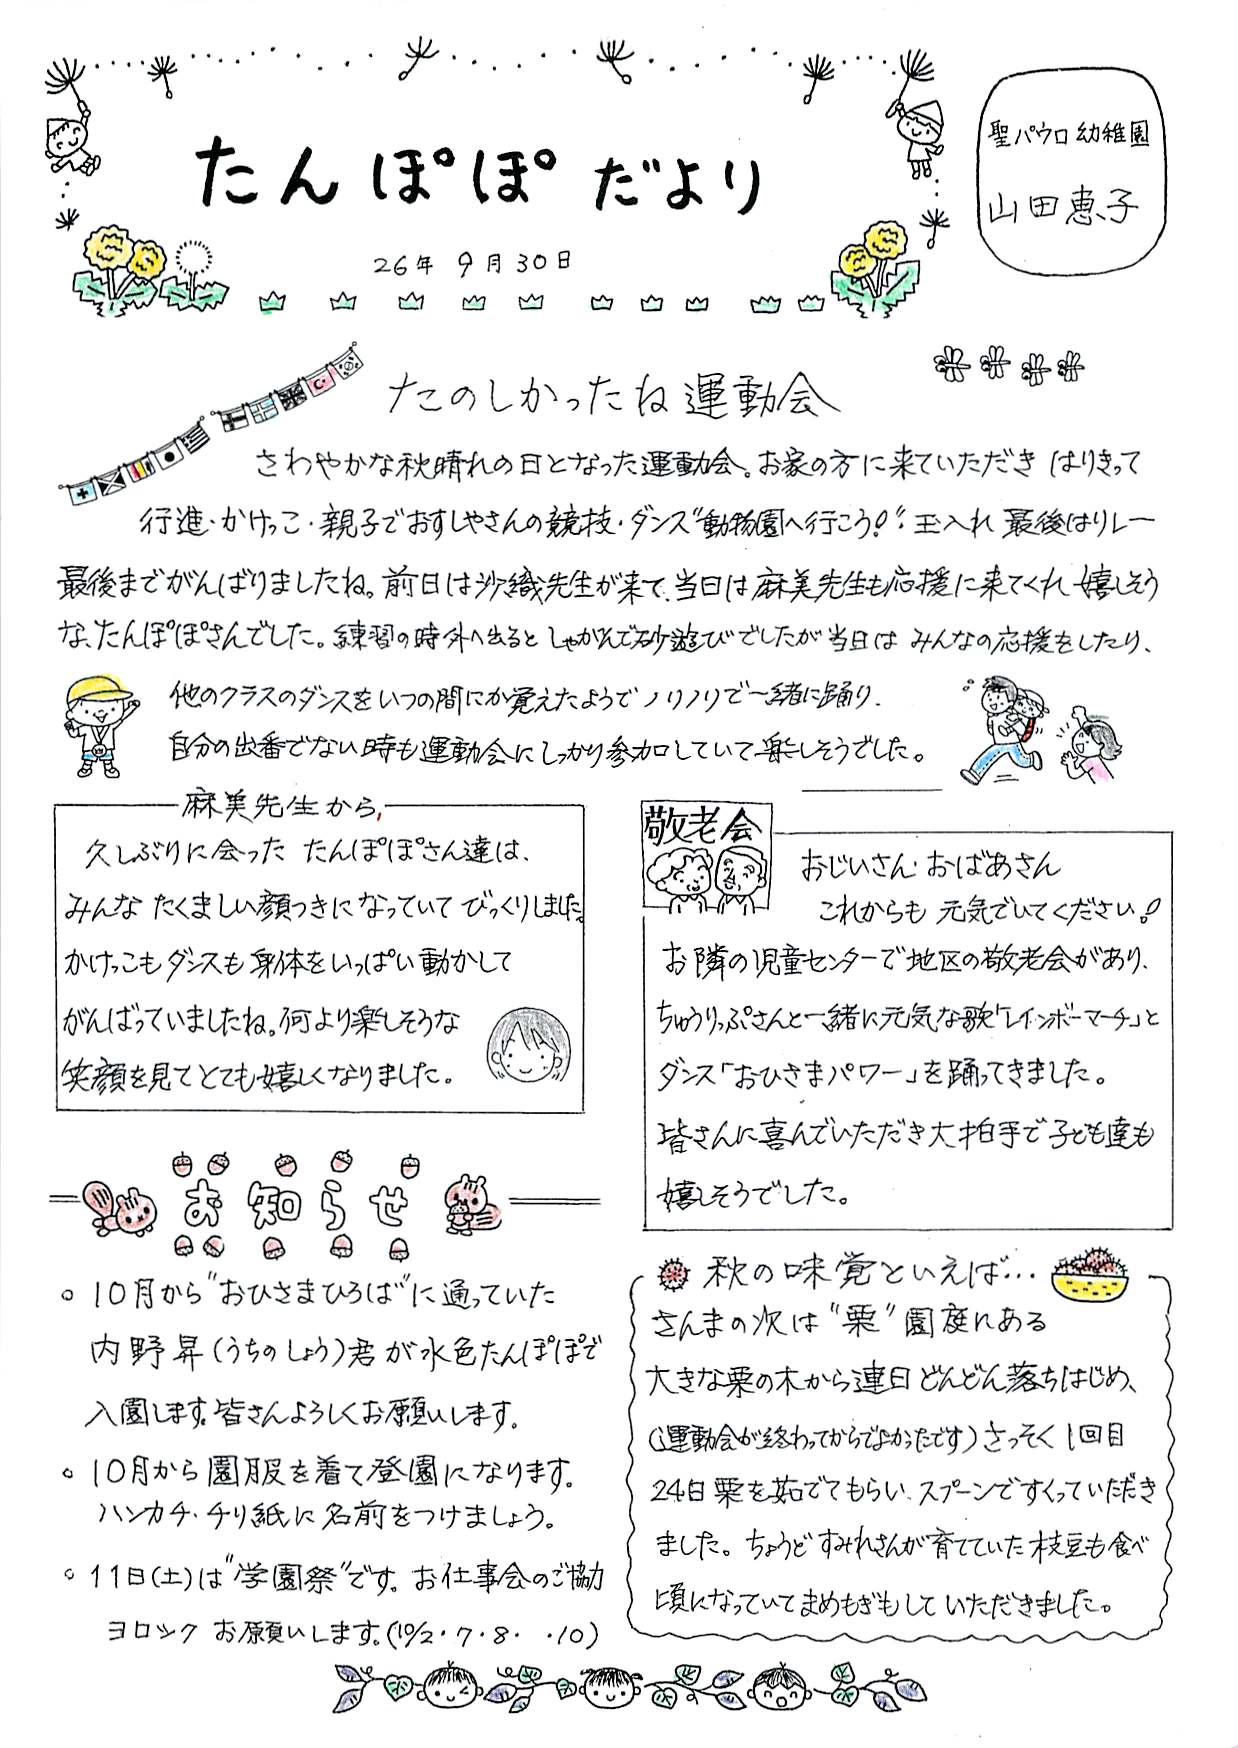 たんぽぽだより
26年 9月30日
聖パウロ幼稚園
山田恵子
たのしかったね運動会
さわやかな秋晴れの日となった運動会。お家の方に来ていただき はりきって
行進・かけっこ・親子でおすしやさんの競技・ダンス"動物園へ行こう!"・玉入れ 最後はリレー
最後までがんばりましたね。前日は沙織先生が来て、当日は麻美先生も応援に来てくれ 嬉しそう
な、たんぽぽさんでした。練習の時外へ出ると しゃがんで砂遊びでしたが 当日は みんなの応援をしたり、
他のクラスのダンスをいつの間にか覚えたようでノリノリで一緒に踊り、
自分の出番でない時も運動会にしっかり参加していて楽しそうでした。
麻美先生から
久しぶりに会った たんぽぽさん達は、
みんな たくましい顔つきになっていて びっくりしました。
かけっこもダンスも身体をいっぱい動かして
がんばっていましたね。何より楽しそうな
笑顔を見てとても嬉しくなりました。
敬老会
おじいさん・おばあさん
これからも 元気でいてください!
お隣の児童センターで地区の敬老会があり、
ちゅうりっぷさんと一緒に元気な歌「レインボーマーチ」と
ダンス「おひさまパワー」を踊ってきました。
皆さんに喜んでいただき大拍手で子ども達も
嬉しそうでした。
お知らせ
○ 10月から"おひさまひろば"に通っていた
内野昇(うちのしょう)君が水色たんぽぽで
入園します。皆さんよろしくお願いします。
○ 10月から園服を着て登園になります。
ハンカチ・チリ紙に名前をつけましょう。
○ 11日(土)は"学園祭"です。お仕事会のご協力
ヨロシク お願いします。(10/2・7・8・ ・10)
秋の味覚といえば…
さんまの次は"栗"園庭にある
大きな栗の木から連日どんどん落ちはじめ、
(運動会が終わってからでよかったです)さっそく1回目
24日栗を茹でてもらい、スプーンですくっていただき
ました。ちょうどすみれさんが育てていた枝豆も食べ
頃になっていてまめもぎもしていただきました。